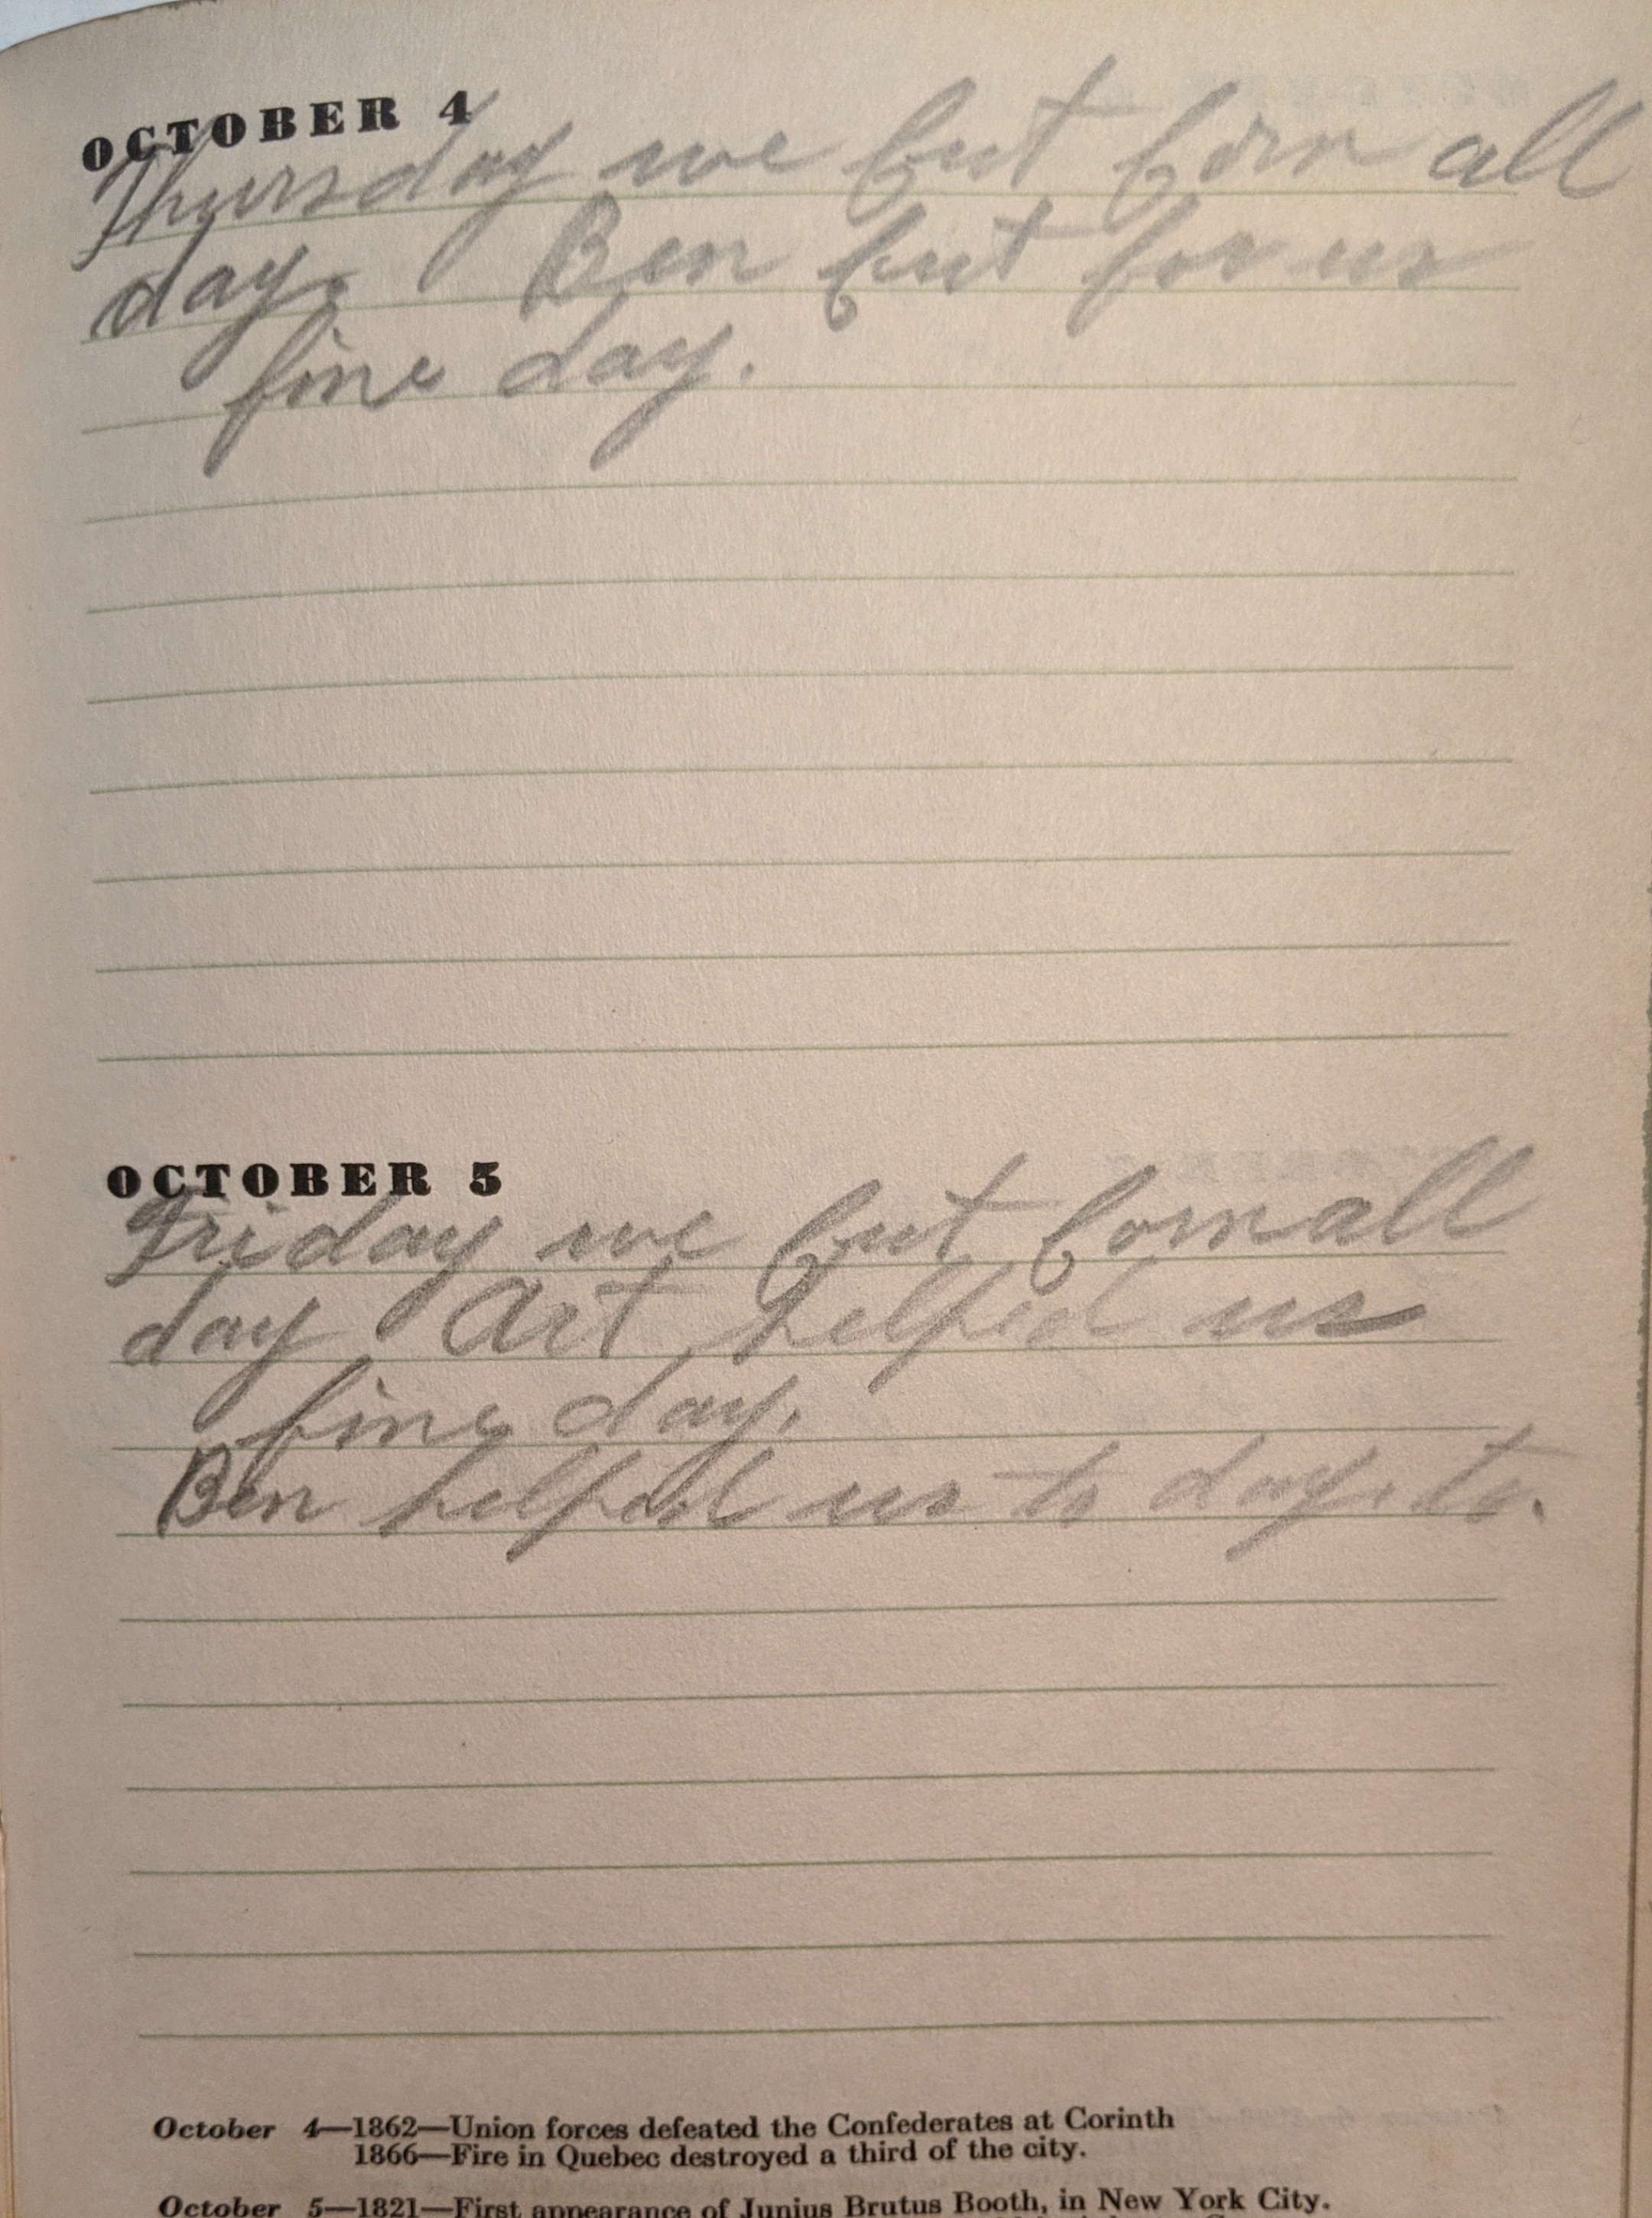 OCTOBER 4
Thursday we cut corn all
day. Ben cut for us
fine day.
OCTOBER 5
Friday we cut corn all
day Art helped us
fine day.
Ben helped us to day. to.
October 4—1862—Union forces defeated the Confederates at Corinth
1866—Fire in Quebec destroyed a third of the city.
October 5—1821—First appearance of Junius Brutus Booth, in New York City.